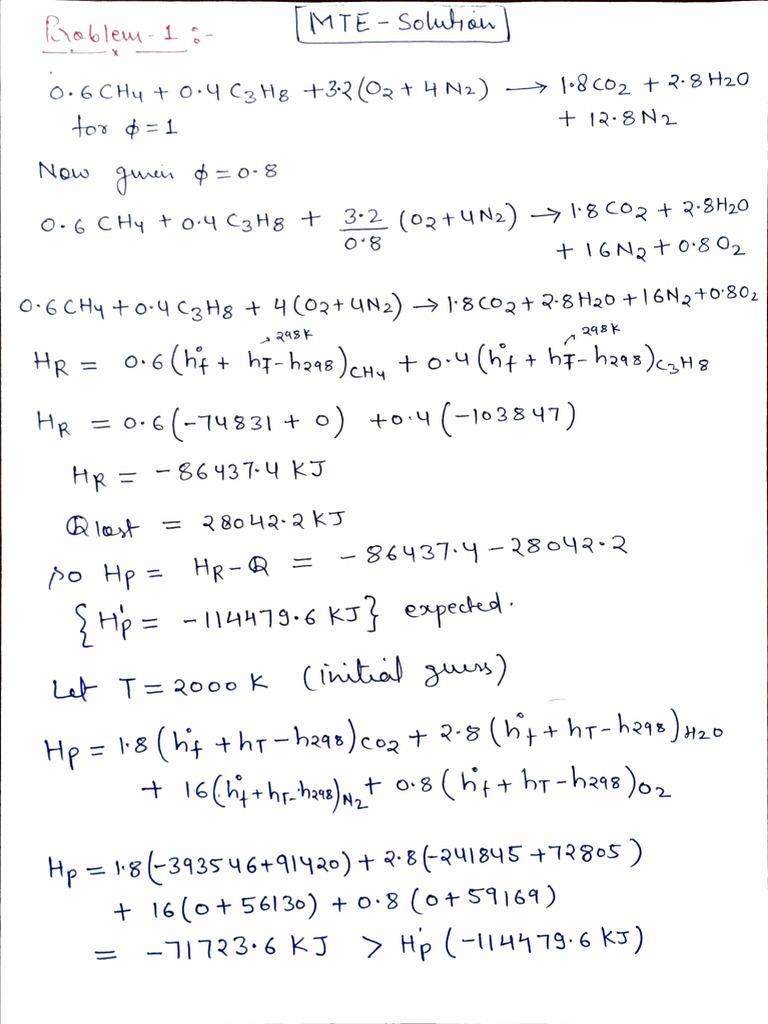 Problem-1 :- [MTE - Solution]
0.6CH4 + 0.4 C3H8 + 3.2(O2 + 4N2) → 1.8CO2 + 2.8H2O
for ϕ = 1 + 12.8N2
Now given ϕ = 0.8
0.6 CH4 + 0.4 C3H8 + 3.2/0.8 (O2 + 4N2) → 1.8 CO2 + 2.8H2O
+ 16N2 + 0.8 O2
0.6CH4 + 0.4 C3H8 + 4(O2 + 4N2) → 1.8CO2 + 2.8H2O + 16N2 + 0.8O2
→298K →298K
HR = 0.6(h°f + hT - h298)CH4 + 0.4(h°f + hT - h298)C3H8
HR = 0.6(-74831 + 0) + 0.4(-103847)
HR = -86437.4 KJ
Qlost = 28042.2 KJ
so Hp = HR - Q = -86437.4 - 28042.2
{H'p = -114479.6 KJ} expected.
Let T = 2000 K (initial guess)
Hp = 1.8(h°f + hT - h298)CO2 + 2.8(h°f + hT - h298)H2O
+ 16(h°f + hT - h298)N2 + 0.8(h°f + hT - h298)O2
Hp = 1.8(-393546 + 91420) + 2.8(-241845 + 72805)
+ 16(0 + 56130) + 0.8(0 + 59169)
= -71723.6 KJ > H'p (-114479.6 KJ)